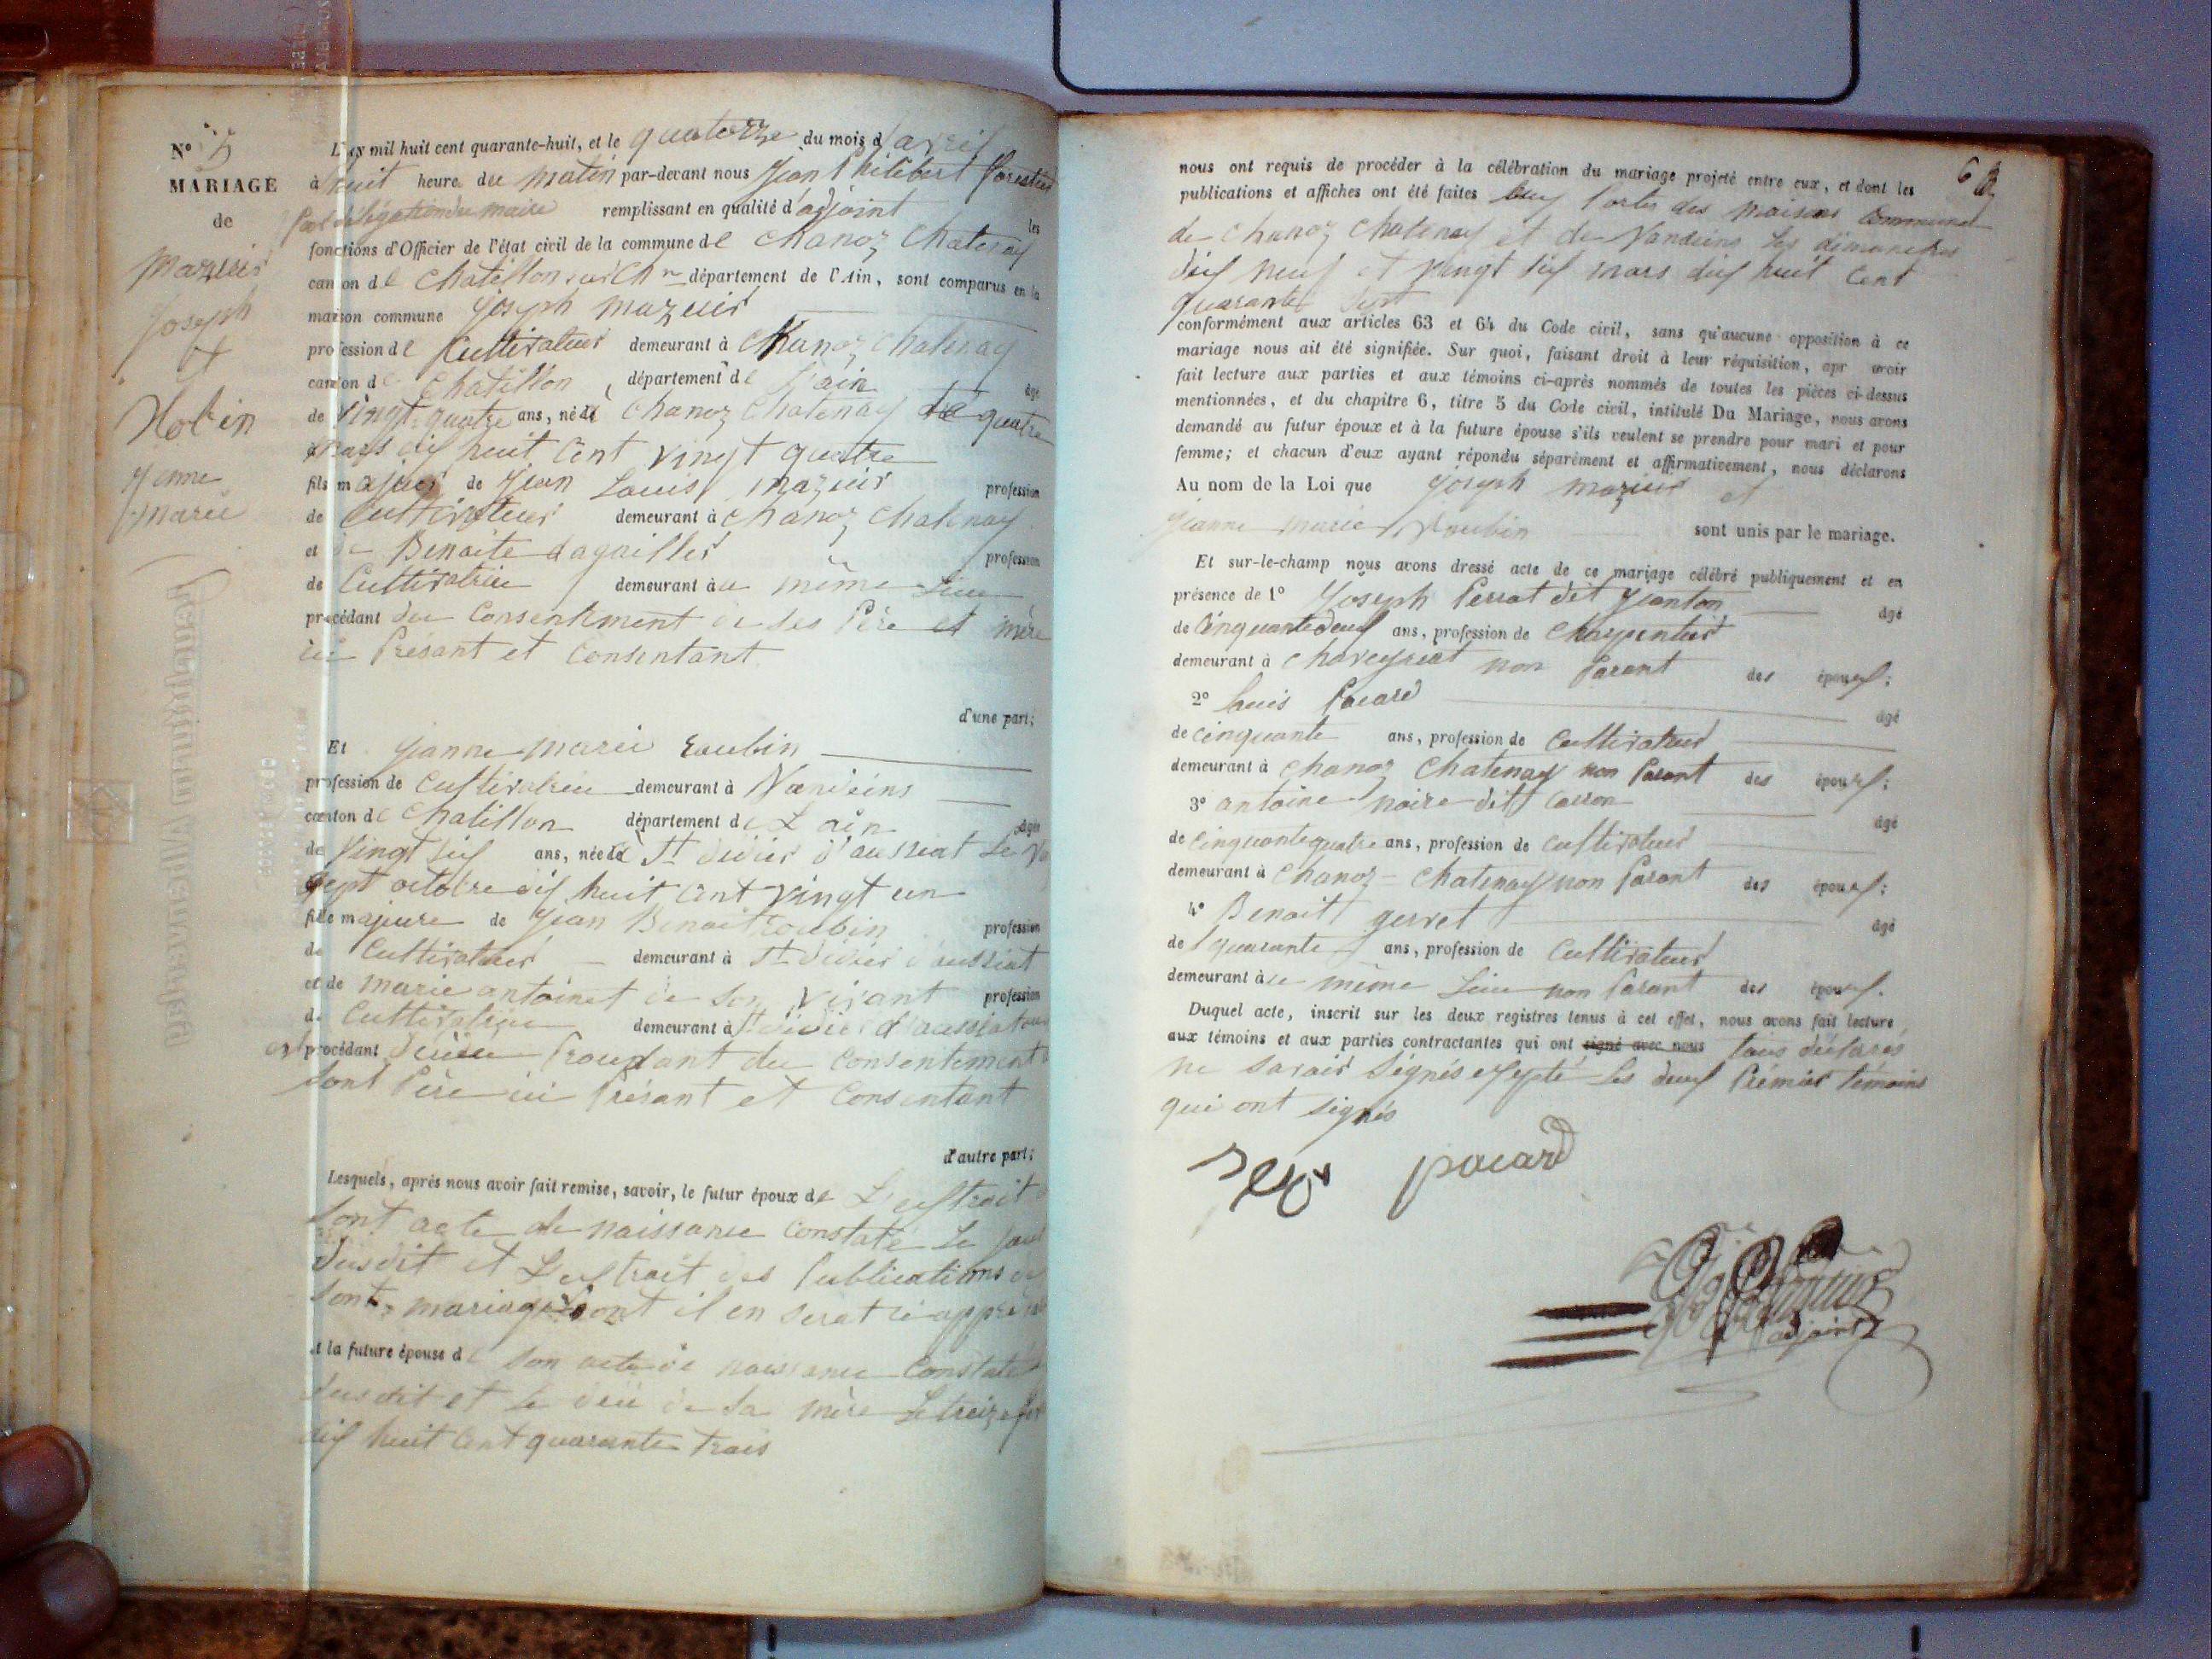 N° 5
MARIAGE
de
Mazuir
Joseph
et
Robin
Jeanne
marie
L'an mil huit cent quarante-huit, et le quatorze du mois d'avril
à huit heure du matin par-devant nous Jean Philibert
Par délégation du maire remplissant en qualité d'adjoint les
fonctions d'Officier de l'état civil de la commune de Chanoz Chatenay
canton de Chatillon sur Ch département de l'Ain, sont comparus en la
maison commune Joseph mazuir
profession de Cultivateur demeurant à Chanoz Chatenay
canton de Chatillon, département de L'ain âgé
de vingt quatre ans, né à Chanoz Chatenay le quatre
mars dix huit Cent vingt quatre
fils majeur de Jean Louis mazuir profession
de Cultivateur demeurant à Chanoz Chatenay
et de Benoite dagailler profession
de Cultivatrice demeurant au même Lieu
procédant du Consentement de ses Père et mère
ici Présant et Consentant
d'une part;
Et Jeanne marie Roubin
profession de Cultivatrice demeurant à Vandeins
canton de Chatillon département de L'ain âgée
de vingt six ans, née à St didier d'aussiat Le
sept octobre dix huit Cent vingt un
fille majeure de Jean Benoit Roubin profession
de Cultivateur demeurant à St didier d'aussiat
et de marie antoinet de son vivant profession
de Cultivatrice demeurant à St didier d'aussiat
procédant Procédant du Consentement
sont Père ici Présant et Consentant
d'autre part;
Lesquels, après nous avoir fait remise, savoir, le futur époux de L'extrait
sont acte de naissance Constaté Le
susdit et L'extrait des Publications de
sont mariage dont il en serat ci appré
et la future épouse de son acte de naissance Constaté
susdit et Le de sa mère Le treize
dix huit Cent quarante trois
6
nous ont requis de procéder à la célébration du mariage projeté entre eux, et dont les
publications et affiches ont été faites aux Portes des maisons Commune
de Chanoz Chatenay et de Vandeins Les dimanches
dix neuf et vingt six mars dix huit Cent
quarante huit
conformément aux articles 63 et 64 du Code civil, sans qu'aucune opposition à ce
mariage nous ait été signifiée. Sur quoi, faisant droit à leur réquisition, apr avoir
fait lecture aux parties et aux témoins ci-après nommés de toutes les pièces ci-dessus
mentionnées, et du chapitre 6, titre 5 du Code civil, intitulé Du Mariage, nous avons
demandé au futur époux et à la future épouse s'ils veulent se prendre pour mari et pour
femme; et chacun d'eux ayant répondu séparément et affirmativement, nous déclarons
Au nom de la Loi que Joseph mazuir et
Jeanne marie Roubin sont unis par le mariage.
Et sur-le-champ nous avons dressé acte de ce mariage célébré publiquement et en
présence de 1° Joseph Perrat dit Janton âgé
de Cinquante deux ans, profession de Charpentier
demeurant à Chaveyriat non Parant des époux;
2° Louis Pacard âgé
de cinquante ans, profession de Cultivateur
demeurant à Chanoz Chatenay non Parant des époux;
3° antoine noire dit Carron âgé
de Cinquante quatre ans, profession de Cultivateur
demeurant à Chanoz-Chatenay non Parant des époux;
4° Benoit gerret âgé
de quarante ans, profession de Cultivateur
demeurant au même Lieu non Parant des époux.
Duquel acte, inscrit sur les deux registres tenus à cet effet, nous avons fait lecture
aux témoins et aux parties contractantes qui ont signé avec nous tous déclarés
ne savair signés exepté Les deux Prémier témoins
qui ont signés
pacard
adjoint